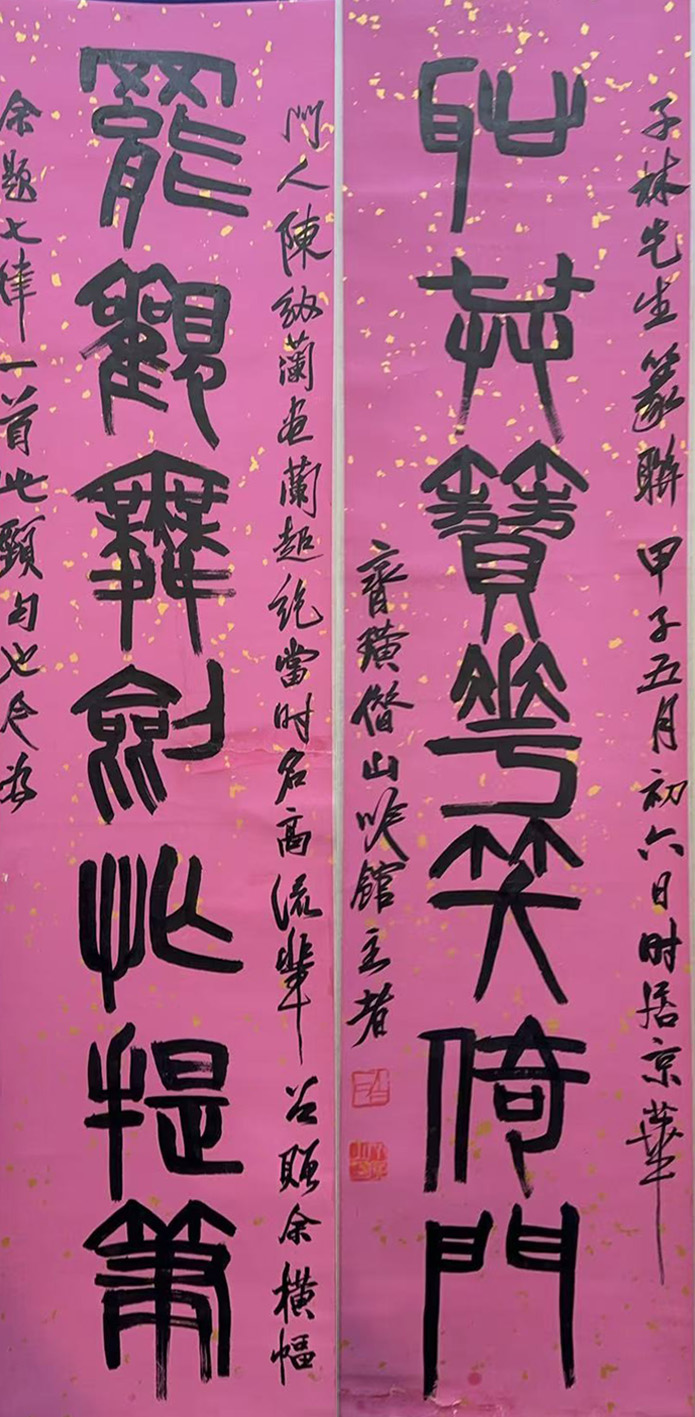 子林先生篆聯 甲子五月初六日时居京華
耻共簪花笑倚門
齊璜借山吟館主者
門人陳紉蘭画蘭超絶當时名高流輩 余橫幅
罷觀舞劍忙提筆
余題七律一首此頸句也今為